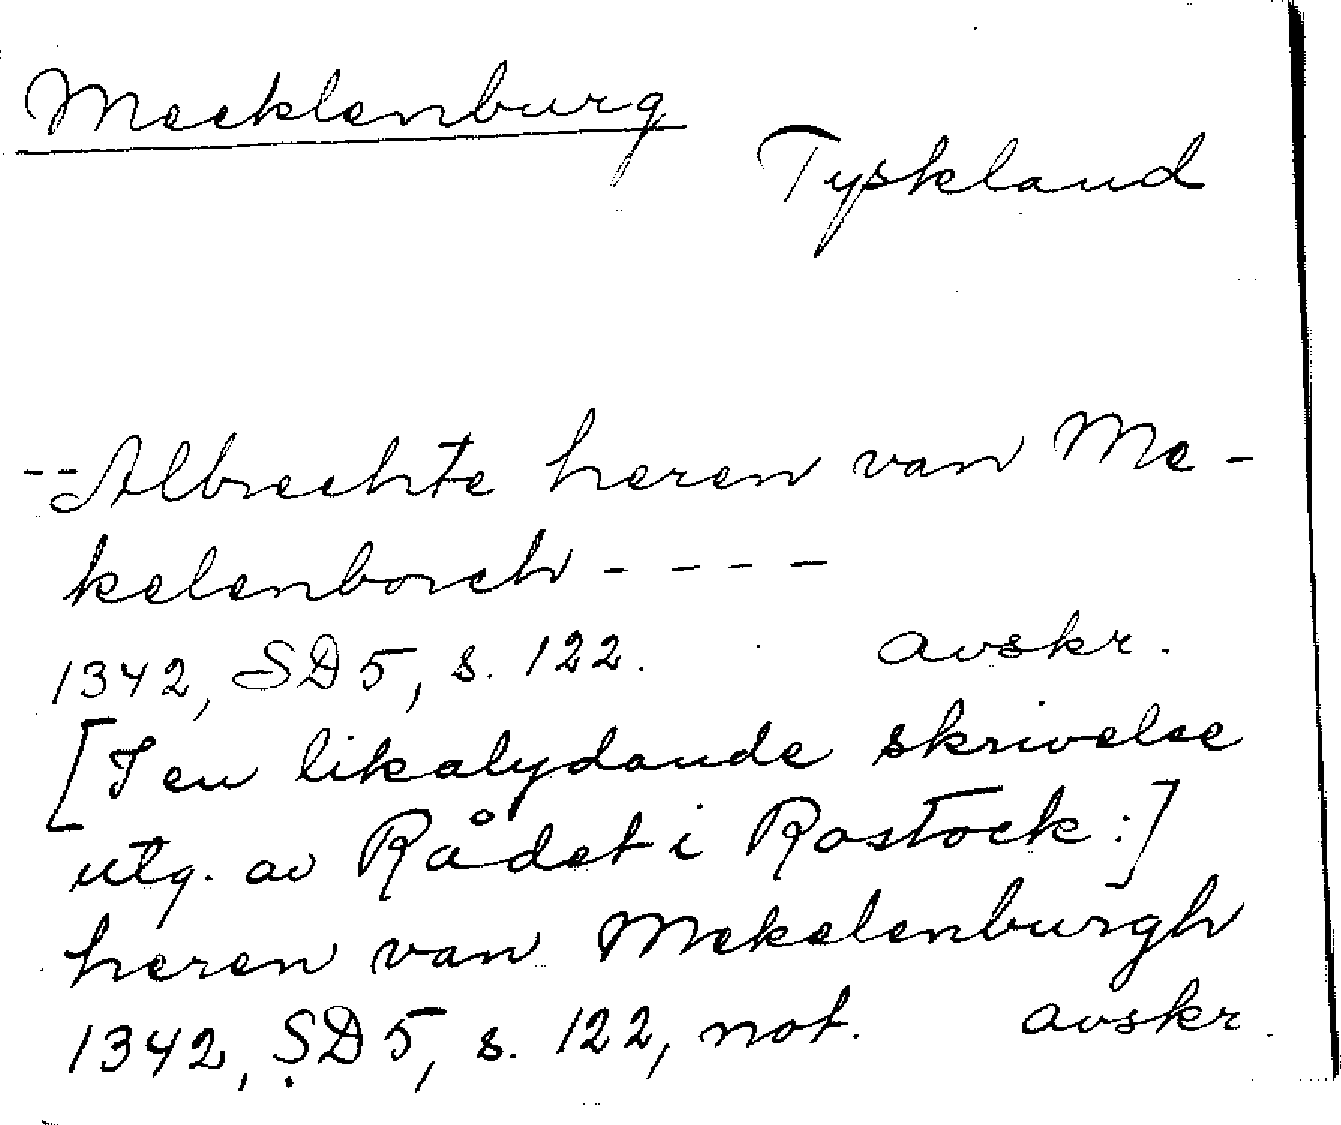 Mecklenburg
Tyskland
--Albrechte heren van Me-
kelenborch ----
1342, SD 5, s. 122. avskr.
[I en likalydande skrivelse
utg. av Rådet i Rostock:]
heren van Mekelenburgh
1342, SD 5, s. 122, not. avskr.